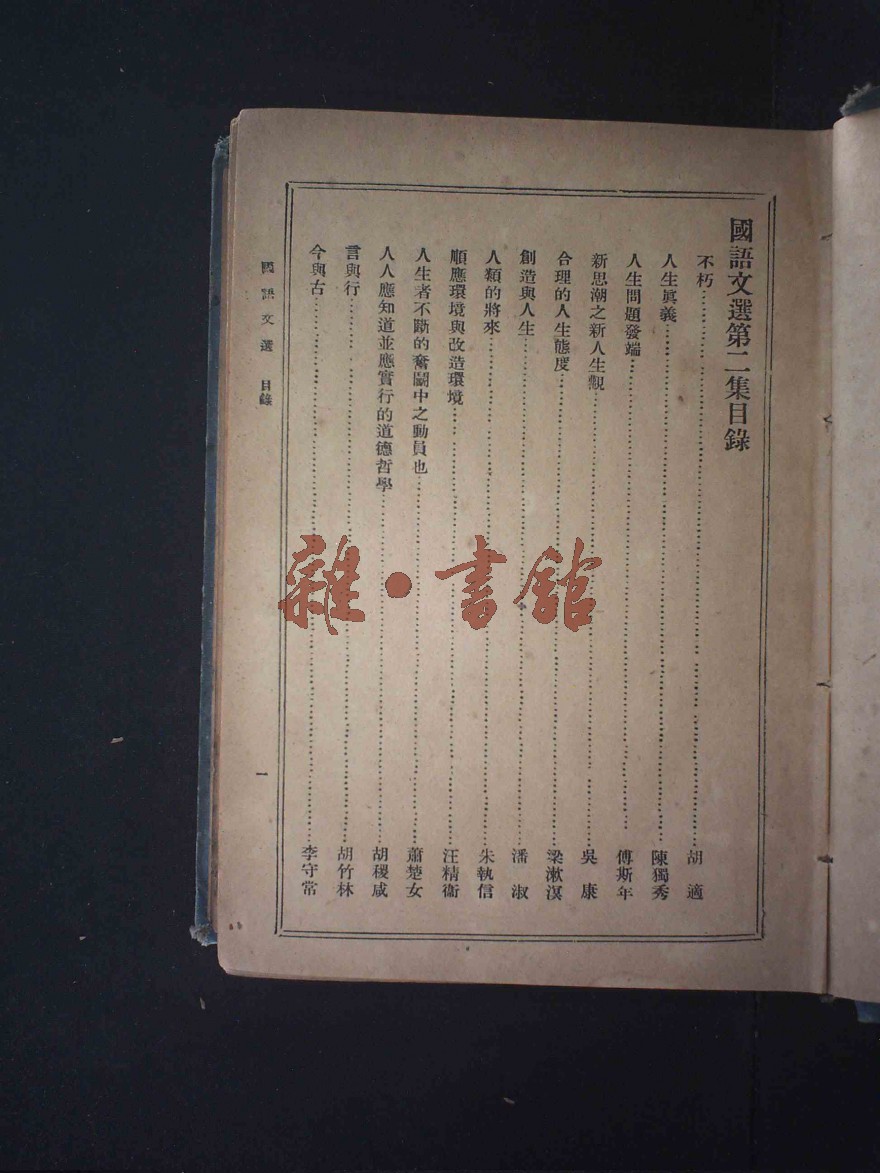 國語文選第二集目錄
不朽…………胡適
人生眞義…………陳獨秀
人生問題發端…………傅斯年
新思潮之新人生觀…………吳康
合理的人生態度…………梁漱溟
創造與人生…………潘淑
人類的將來…………朱執信
順應環境與改造環境…………汪精衞
人生者不斷的奮鬭中之動員也…………蕭楚女
人人應知道並應實行的道德哲學…………胡稷咸
言與行…………胡竹林
今與古…………李守常
國語文選 目錄
一
雜·書館